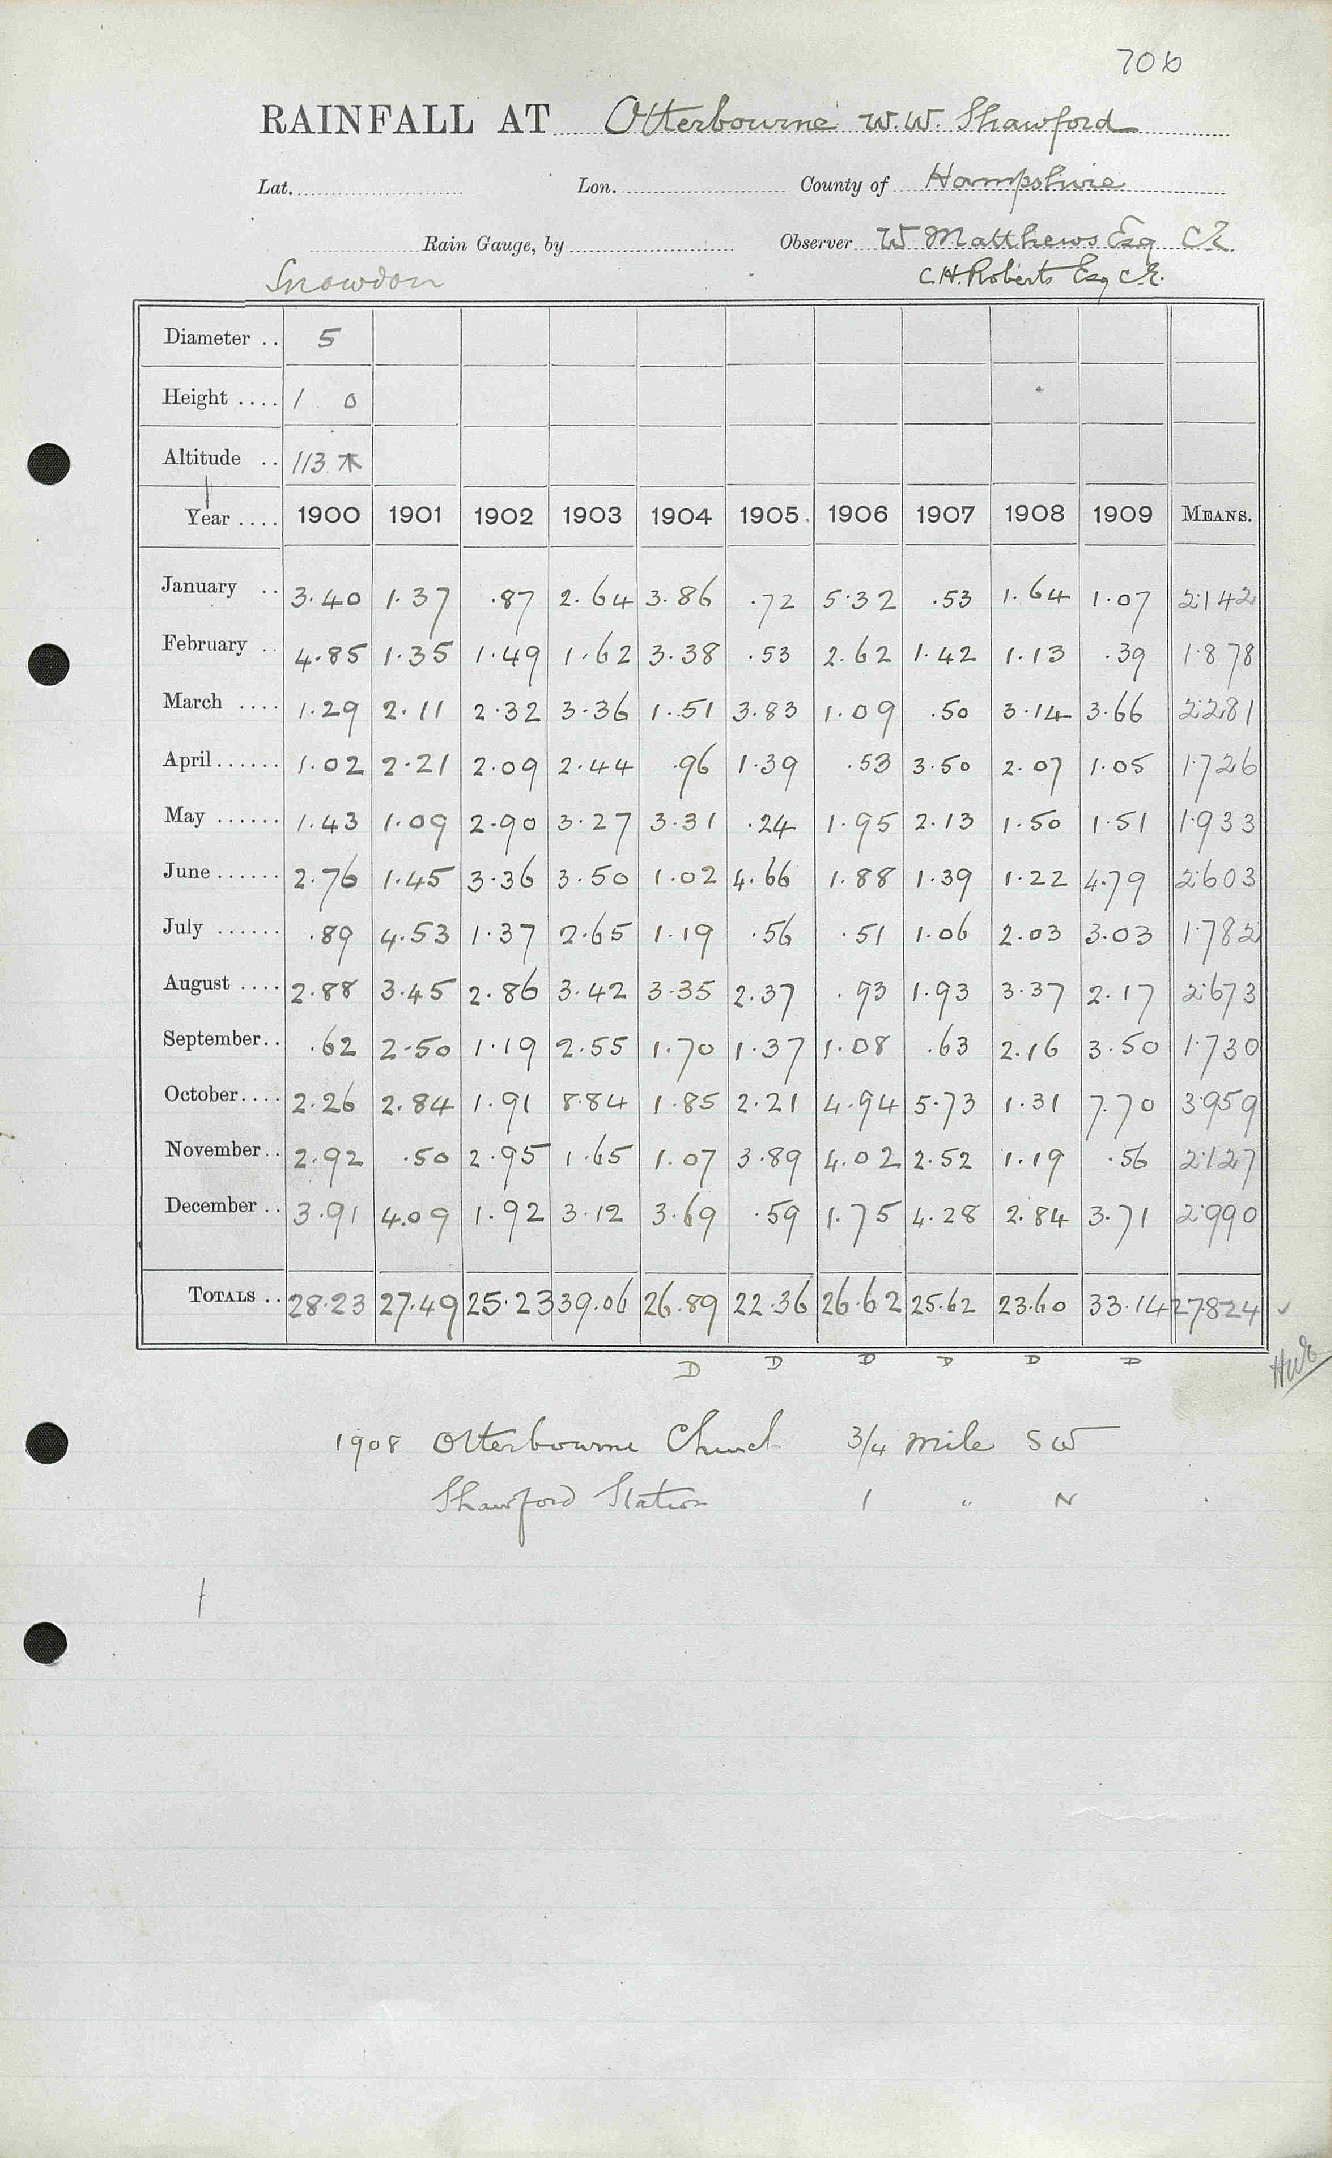 706
RAINFALL AT Otterbourne W.W. Shawford
Lat. Lon. County of Hampshire
Rain Gauge, by Observer W Matthews Esq CE
Snowdon C.H. Roberts Esq C.E.
Diameter .. 5
Height .... 1 0
Altitude .. 113
Year .... 1900 1901 1902 1903 1904 1905 1906 1907 1908 1909 MEANS.
January .. 3.40 1.37 .87 2.64 3.86 .72 5.32 .53 1.64 1.07 2.142
February .. 4.85 1.35 1.49 1.62 3.38 .53 2.62 1.42 1.13 .39 1.878
March .... 1.29 2.11 2.32 3.36 1.51 3.83 1.09 .50 3.14 3.66 2.281
April...... 1.02 2.21 2.09 2.44 .96 1.39 .53 3.50 2.07 1.05 1.726
May ...... 1.43 1.09 2.90 3.27 3.31 .24 1.95 2.13 1.50 1.51 1.933
June ...... 2.76 1.45 3.36 3.50 1.02 4.66 1.88 1.39 1.22 4.79 2.603
July ...... .89 4.53 1.37 2.65 1.19 .56 .51 1.06 2.03 3.03 1.782
August .... 2.88 3.45 2.86 3.42 3.35 2.37 .93 1.93 3.37 2.17 2.673
September.. .62 2.50 1.19 2.55 1.70 1.37 1.08 .63 2.16 3.50 1.730
October.... 2.26 2.84 1.91 8.84 1.85 2.21 4.94 5.73 1.31 7.70 3.959
November.. 2.92 .50 2.95 1.65 1.07 3.89 4.02 2.52 1.19 .56 2.127
December .. 3.91 4.09 1.92 3.12 3.69 .59 1.75 4.28 2.84 3.71 2.990
TOTALS .. 28.23 27.49 25.23 39.06 26.89 22.36 26.62 25.62 23.60 33.14 27.824 ✓
D D D D D D
1908 Otterbourne Church 3/4 mile SW
Shawford Station 1 " N